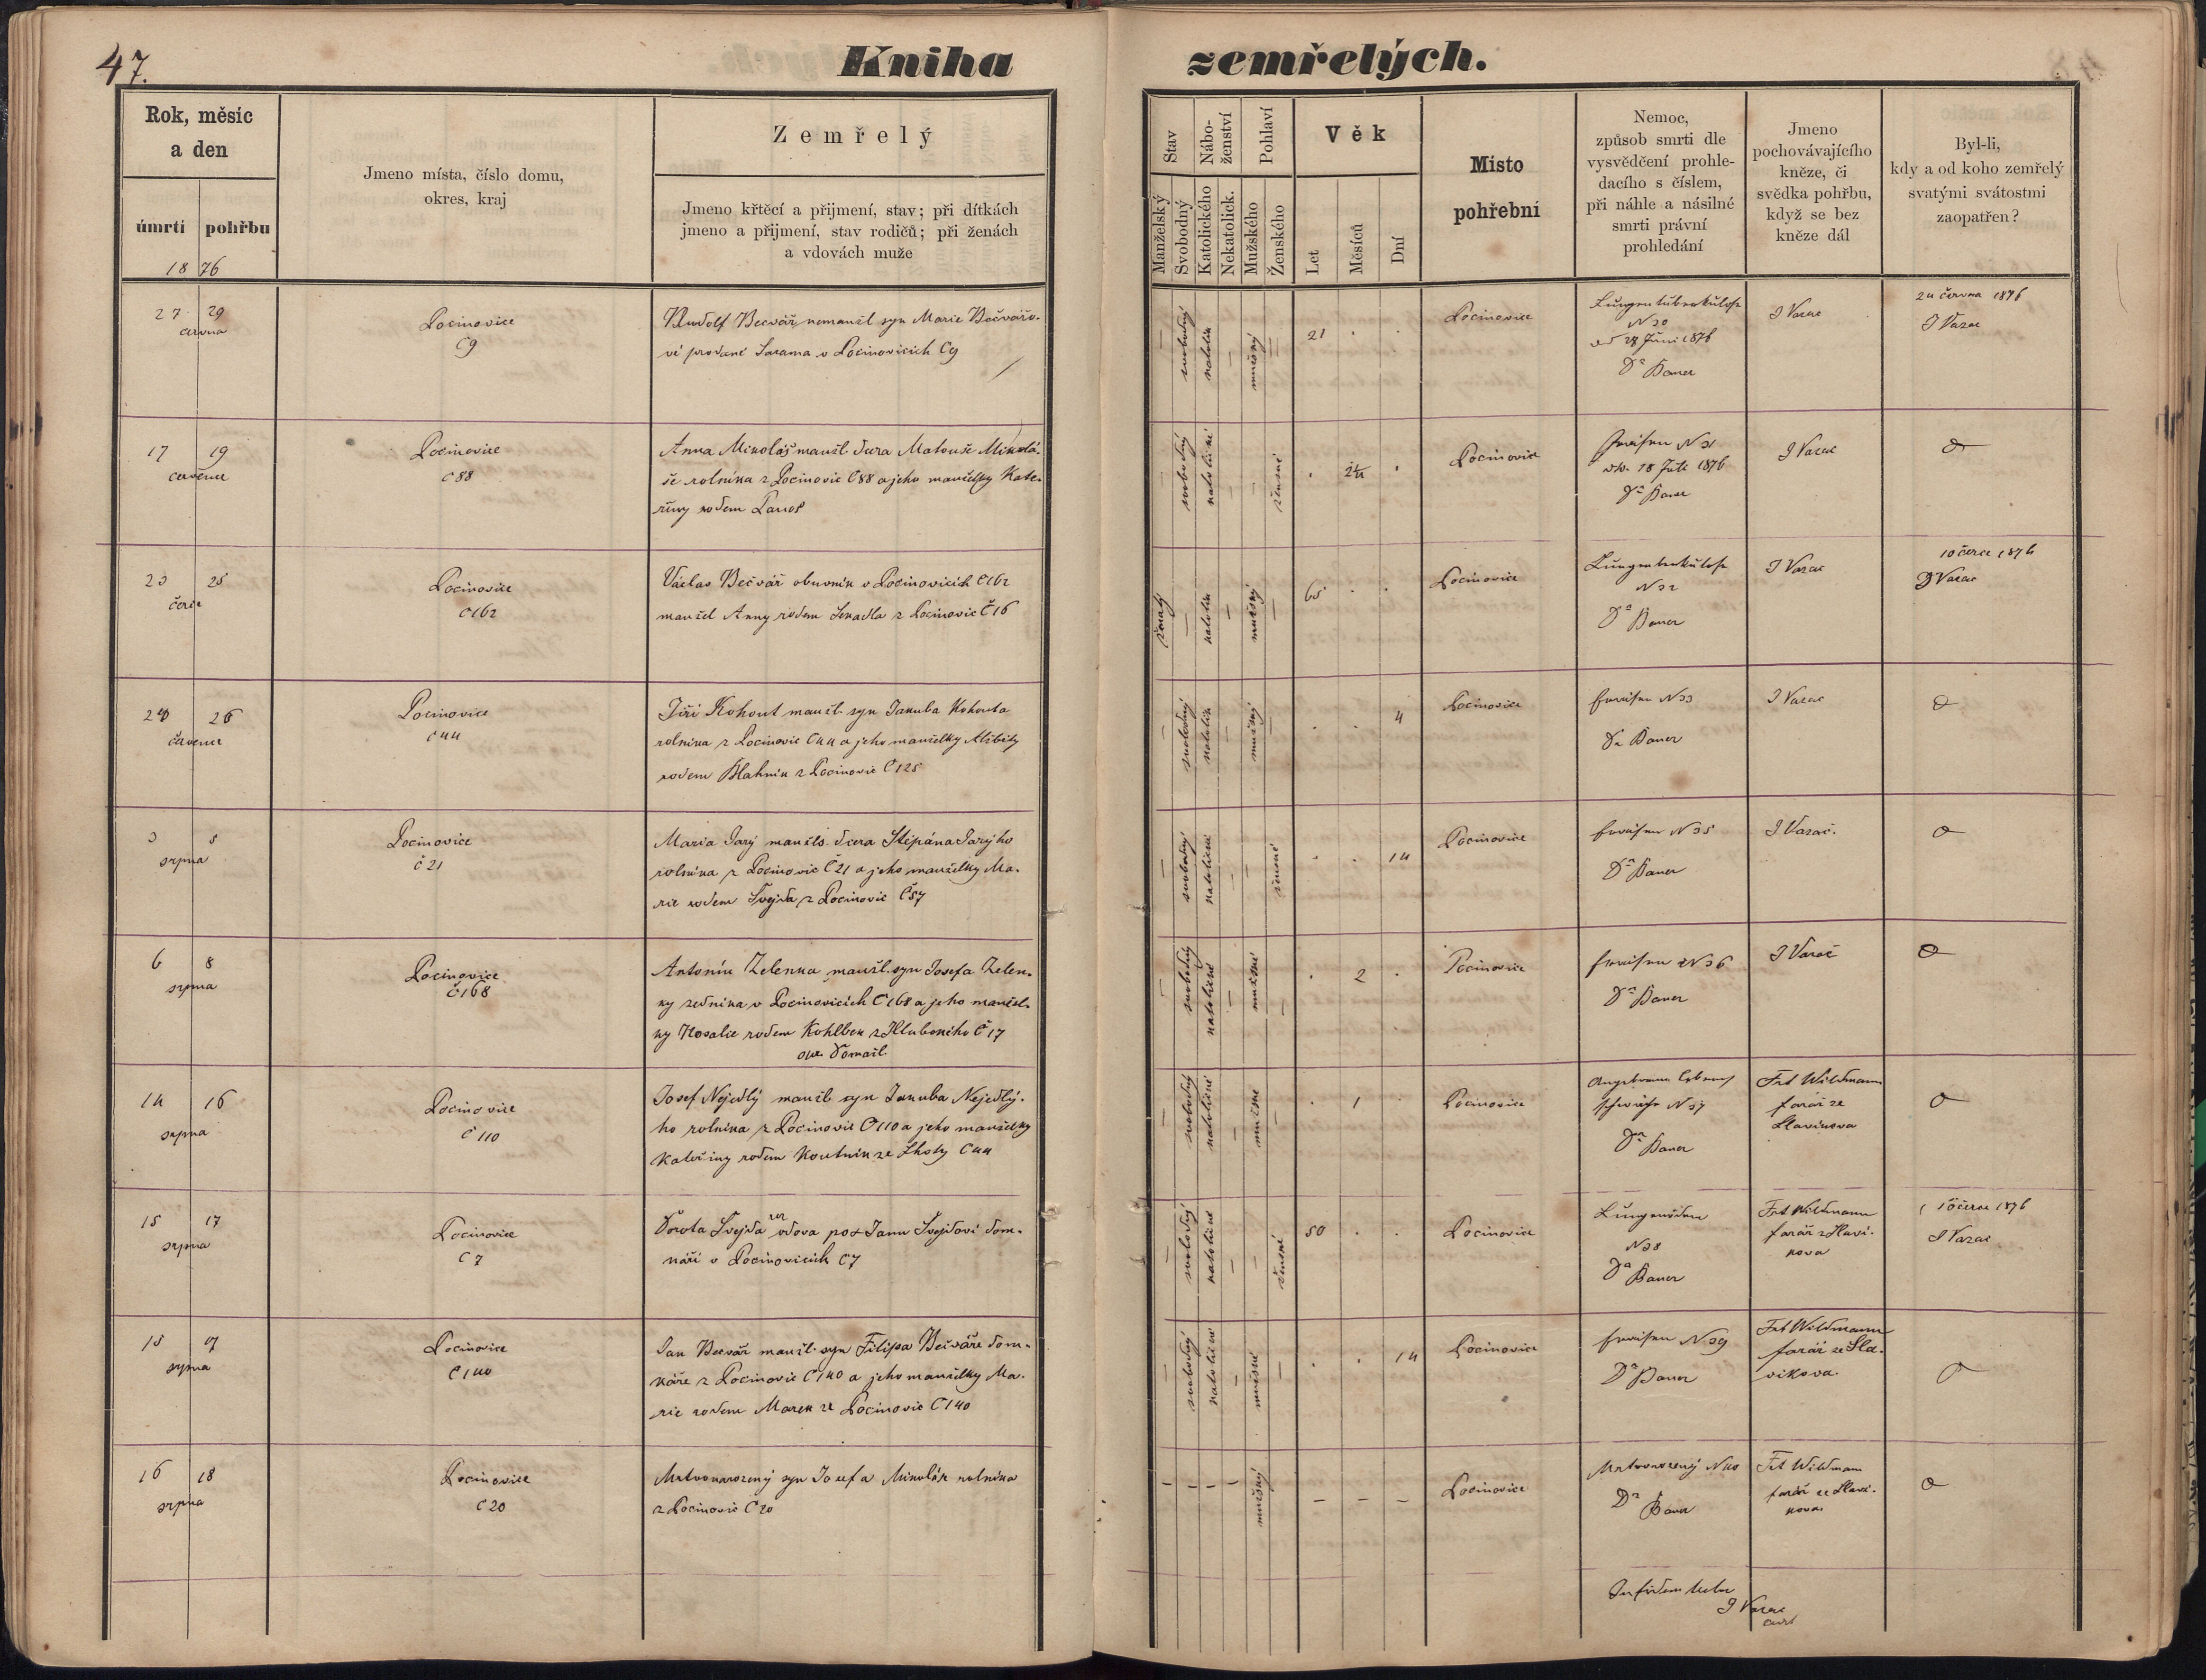 47.
Kniha zemřelých.
Rok, měsíc
a den
úmrtí pohřbu
1876
Jmeno místa, číslo domu,
okres, kraj
Zemřelý
Jmeno křtěcí a přijmení, stav; při dítkách
jmeno a přijmení, stav rodičů; při ženách
a vdovách muže
Stav
Manželský
Svobodný
Nábo-
ženství
Katolického
Nekatolick.
Pohlaví
Mužského
Ženského
Věk
Let
Měsíců
Dní
Místo
pohřební
Nemoc,
způsob smrti dle
vysvědčení prohle-
dacího s číslem,
při náhle a násilné
smrti právní
prohledání
Jmeno
pochovávajícího
kněze, či
svědka pohřbu,
když se bez
kněze dál
Byl-li,
kdy a od koho zemřelý
svatými svátostmi
zaopatřen?
27 29
června
Pocinovice
C9
Rudolf Becvář nemanžl syn Marie Bečvářo-
vé provdané v Pocinovicích C9
— svobodný katolík — mužský —
21 . .
Pocinovice
Lungentuberkulose
N 30
28 Juni 1876
Dr Bauer
J Varac
24 června 1876
J Varac
17 19
července
Pocinovice
C88
Anna Mikoláš manžl. dcera Matouše Mikolá-
še rolníka z Pocinovic C88 a jeho manželky Kate-
řiny rodem
— svobodný katolické — — ženské
. 2¼ .
Pocinovice
Fraisen N 31
18 Juli 1876
Dr Bauer
J Varac
23 25
červce
Pocinovice
C162
Václav Bečvář obuvník v Pocinovicích C162
manžel Anny rodem z Pocinovic Č16
ženatý — katolík — mužský —
65 . .
Pocinovice
Lungentuberkulose
N 32
Dr Bauer
J Varac
10 červce 1876
J Varac
24 26
července
Pocinovice
C44
Jiří Kohout manžl. syn Jakuba Kohouta
rolníka z Pocinovic C44 a jeho manželky Alžběty
rodem Blahník z Pocinovic C125
— svobodný katolík — mužský —
. . 4
Pocinovice
Fraisen N 33
Dr Bauer
J Varac
3 5
srpna
Pocinovice
č 21
Maria Jarý manžls. dcera Štěpána Jarýho
rolníka z Pocinovic Č21 a jeho manželky Ma-
rie rodem Švejda z Pocinovic Č57
— svobodný katolické — — ženské
. . 14
Pocinovice
Fraisen N 35
Dr Bauer
J Varač.
6 8
srpna
Pocinovice
č168
Antonín Zelenka manžl. syn Josefa Zelen-
ky zedníka v Pocinovicích C168 a jeho manžel-
ky Rosalie rodem z Hlubokého Č17
okr. Domažl.
— svobodný katolické — mužské —
. 2 .
Pocinovice
Fraisen N 36
Dr Bauer
J Varač
14 16
srpna
Pocinovice
č 110
Josef Nejedlý manžl. syn Jakuba Nejedlý-
ho rolníka z Pocinovic C110 a jeho manželky
Kateřiny rodem Koutník ze Lhoty C44
— svobodný katolické — mužské —
. 1 .
Pocinovice
Angeborne Lebens
schwäche N 37
Dr Bauer
Frt Wildmann
farář ze
Slavikova
15 17
srpna
Pocinovice
C7
Dorota Švejda vdova po Janu Švejdovi dom-
káři v Pocinovicích C7
— svobodný katolické — — ženské
50 . .
Pocinovice
Lungenödem
N 38
Dr Bauer
Frt Wildmann
farář z Slaví-
kova
10 červce 1876
J Varac
15 17
srpna
Pocinovice
C140
Jan Becvář manžl. syn Filipa Bečváře dom-
káře z Pocinovic C140 a jeho manželky Ma-
rie rodem Marek ze Pocinovic C140
— svobodný katolické — mužské —
. . 14
Pocinovice
Fraisen N 39
Dr Bauer
Frt Wildmann
farář ze Sla-
vikova.
16 18
srpna
Pocinovice
C20
Mrtvonarozený syn Josefa Mikoláše rolníka
z Pocinovic C20
— — — — mužský
— — —
Pocinovice
Mrtvorozený N 40
Dr Bauer
Frt Wildmann
farář ze Slaví-
kova
J Varac